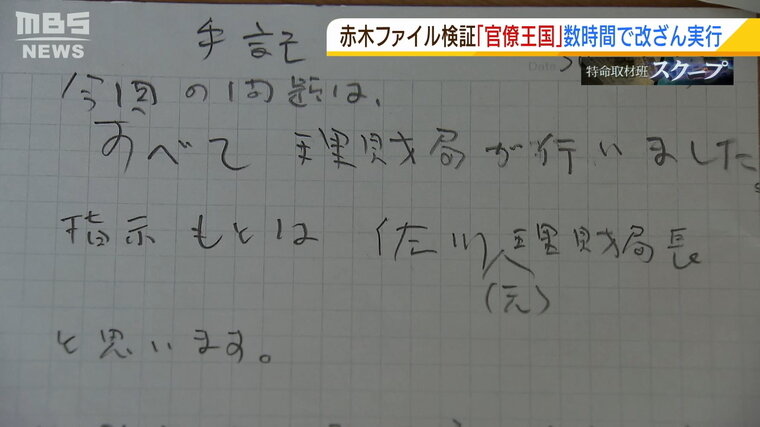 MBS
NEWS
赤木ファイル検証「官僚王国」数時間で改ざん実行
特命取材班 スクープ
手記
今回の問題は、
すべて理財局が行いました。
指示もとは佐川理財局長
(元)
と思います。